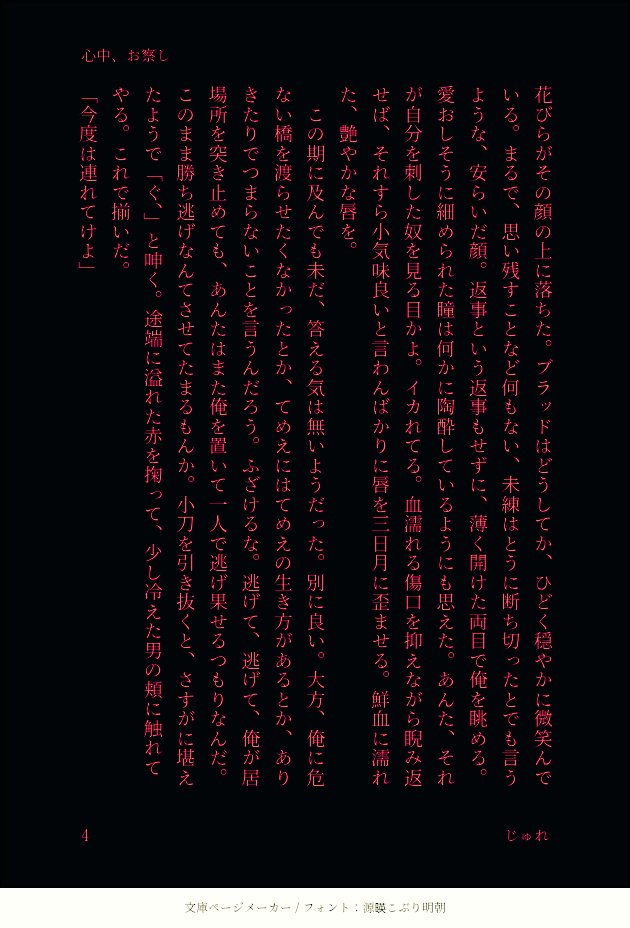 心中、お察し
花びらがその顔の上に落ちた。ブラッドはどうしてか、ひどく穏やかに微笑んで
いる。まるで、思い残すことなど何もない、未練はとうに断ち切ったとでも言う
ような、安らいだ顔。返事という返事もせずに、薄く開けた両目で俺を眺める。
愛おしそうに細められた瞳は何かに陶酔しているようにも思えた。あんた、それ
が自分を刺した奴を見る目かよ。イカれてる。血濡れる傷口を抑えながら睨み返
せば、それすら小気味良いと言わんばかりに唇を三日月に歪ませる。鮮血に濡れ
た、艶やかな唇を。
　この期に及んでも未だ、答える気は無いようだった。別に良い。大方、俺に危
ない橋を渡らせたくなかったとか、てめえにはてめえの生き方があるとか、あり
きたりでつまらないことを言うんだろう。ふざけるな。逃げて、逃げて、俺が居
場所を突き止めても、あんたはまた俺を置いて一人で逃げ果せるつもりなんだ。
このまま勝ち逃げなんてさせてたまるもんか。小刀を引き抜くと、さすがに堪え
たようで「ぐ、」と呻く。途端に溢れた赤を掬って、少し冷えた男の頬に触れて
やる。これで揃いだ。
「今度は連れてけよ」
4
じゅれ
文庫ページメーカー / フォント：源暎こぶり明朝